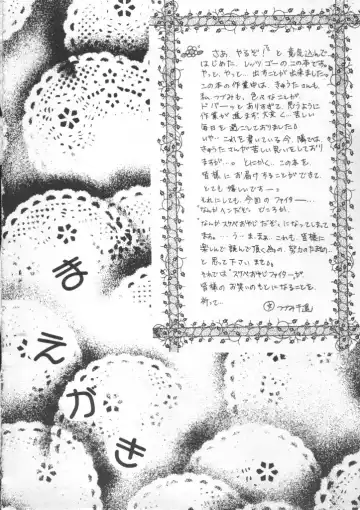 まえがき
さぁ、やるぞ!!と意気込んで
はじめた、レッツゴーのこの本です。
やっと、やっと…出すことが出来ました。
この本の作業中は、きゅうたさんも、
私、つづみも、色々なことが
ドバーっとありすぎて、思うように
作業が進まず大変で…苦しい
毎日を過ごしておりました。
いや…これを書いている今、隣では
きゅうたさんが苦しい思いをしており
ますが…。とにかく、この本を、
皆様にお届けすることができて、
とても嬉しいです…。
それにしても、今回のファイター…、
"なんかヘンだぞ" どころか、
"なんかスケベおやじだぞ" になってしまって
ます。…うーま、まぁ、これも、皆様に
楽しんで読んで頂く為の、努力のため
と思って下さいませ。
それでは "スケベおやじファイター" が、
皆様のお笑いのもとになることを、
祈って…
つづみ